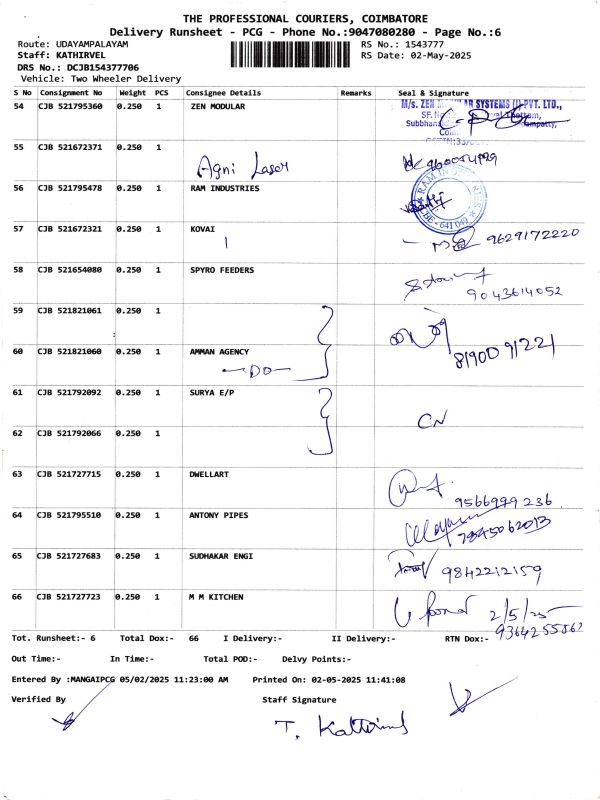 THE PROFESSIONAL COURIERS, COIMBATORE
Delivery Runsheet - PCG - Phone No.:9047080280 - Page No.:6
Route: UDAYAMPALAYAM RS No.: 1543777
Staff: KATHIRVEL RS Date: 02-May-2025
DRS No.: DCJB154377706
Vehicle: Two Wheeler Delivery
S No Consignment No Weight PCS Consignee Details Remarks Seal & Signature
54 CJB 521795360 0.250 1 ZEN MODULAR
M/s. ZEN MODULAR SYSTEMS (I) PVT. LTD.,
55 CJB 521672371 0.250 1
Agni Laser
56 CJB 521795478 0.250 1 RAM INDUSTRIES
57 CJB 521672321 0.250 1 KOVAI
9629172220
58 CJB 521654080 0.250 1 SPYRO FEEDERS
9043614052
59 CJB 521821061 0.250 1
60 CJB 521821060 0.250 1 AMMAN AGENCY
8190091221
—DO—
61 CJB 521792092 0.250 1 SURYA E/P
CN
62 CJB 521792066 0.250 1
63 CJB 521727715 0.250 1 DWELLART
9566999236
64 CJB 521795510 0.250 1 ANTONY PIPES
65 CJB 521727683 0.250 1 SUDHAKAR ENGI
9842212159
66 CJB 521727723 0.250 1 M M KITCHEN
2/5/25
Tot. Runsheet:- 6 Total Dox:- 66 I Delivery:- II Delivery:- RTN Dox:-
Out Time:- In Time:- Total POD:- Delvy Points:-
Entered By :MANGAIPCG 05/02/2025 11:23:00 AM Printed On: 02-05-2025 11:41:08
Verified By Staff Signature